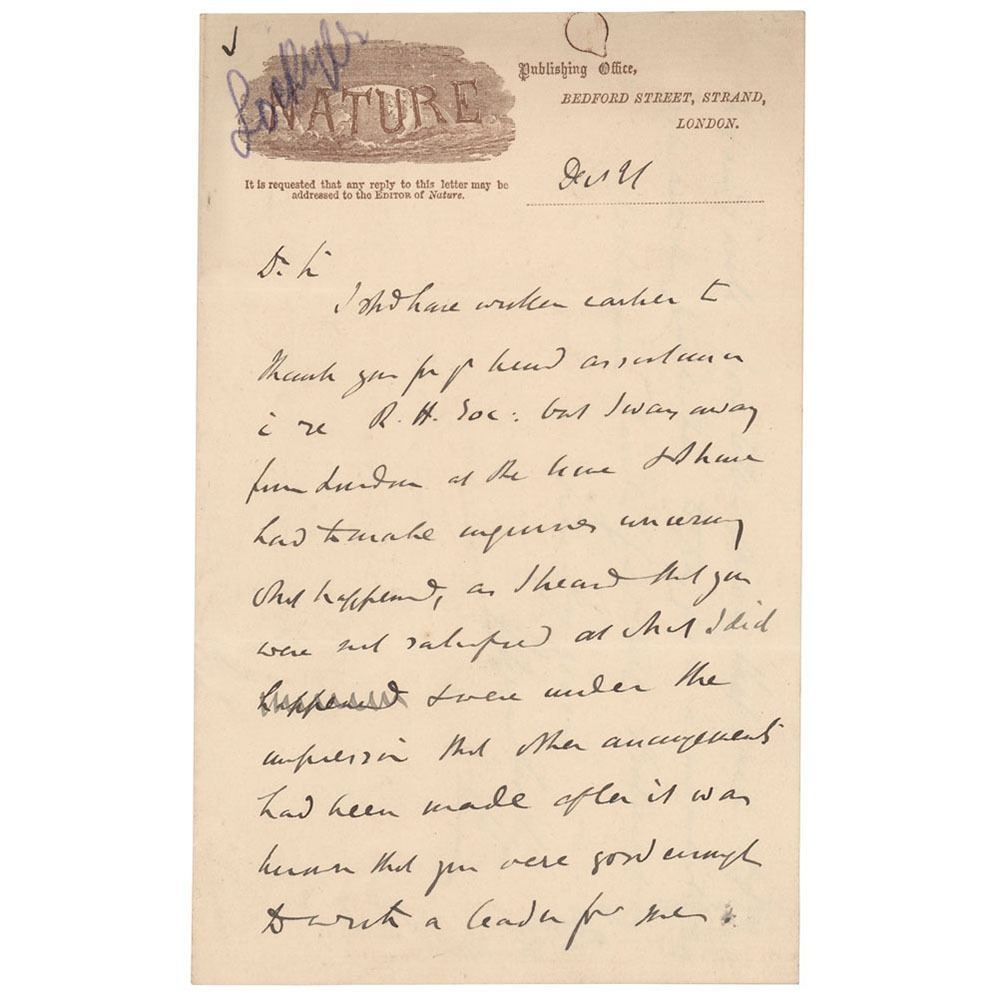 Lockyer
NATURE
Publishing Office,
BEDFORD STREET, STRAND,
LONDON.
It is requested that any reply to this letter may be
addressed to the EDITOR of Nature.
Dr Sir
I shd have written earlier to
thank you for yr kind assistance
re R. H. Soc: but I was away
from London at the time & have
had to make inquiries concerning
what happened, as I heard that you
were not satisfied at what I did
happened & were under the
impression that other arrangements
had been made after it was
known that you were good enough
to write a leader for me.